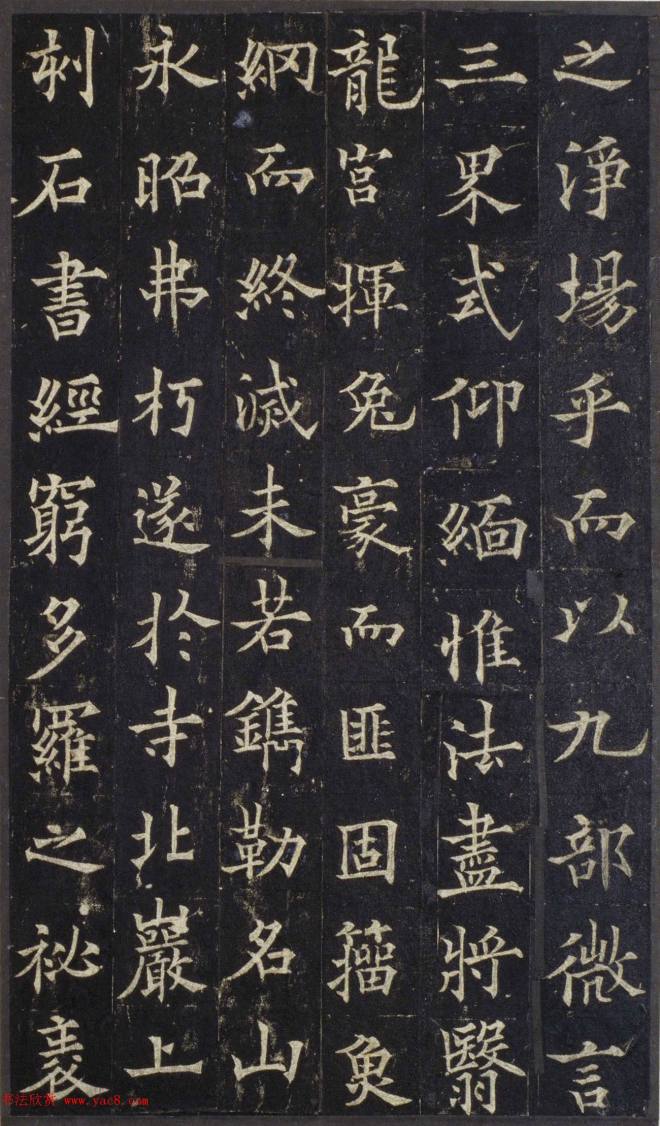 之淨場乎而以九部微言
三界式仰緬惟法盡將翳
龍宮揮兔豪而匪固籀魚
網而終滅未若鐫勒名山
永昭弗朽遂於寺北巖上
刻石書經窮多羅之祕義
书法欣赏 www.yac8.com